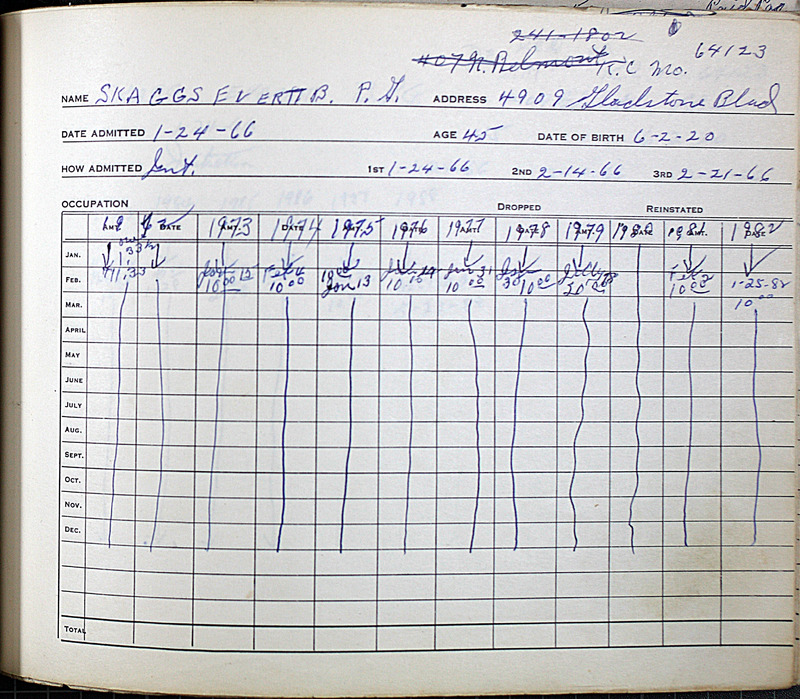 Paid Pag
241-1802
4079 N. Belmont K.C Mo. 64123
NAME SKAGGS EVERTT B. P. G. ADDRESS 4909 Gladstone Blvd
DATE ADMITTED 1-24-66 AGE 45 DATE OF BIRTH 6-2-20
HOW ADMITTED Int. 1ST 1-24-66 2ND 2-14-66 3RD 2-21-66
OCCUPATION DROPPED REINSTATED
AMT. DATE 1973 AMT. 1974 DATE 1975 AMT. 1976 DATE 1977 AMT. 1978 DATE 1979 AMT. 1980 DATE 1981 AMT. 1982 DATE
JAN.
FEB. 11.33 Jan 12 10 00 Feb 4 10.00 10 00 Jan 13 10 00 Jan 31 10 00 Jan 30 10 00 20 00 Feb 2 10 00 1-25-82
MAR. 10 00
APRIL
MAY
JUNE
JULY
AUG.
SEPT.
OCT.
NOV.
DEC.
TOTAL